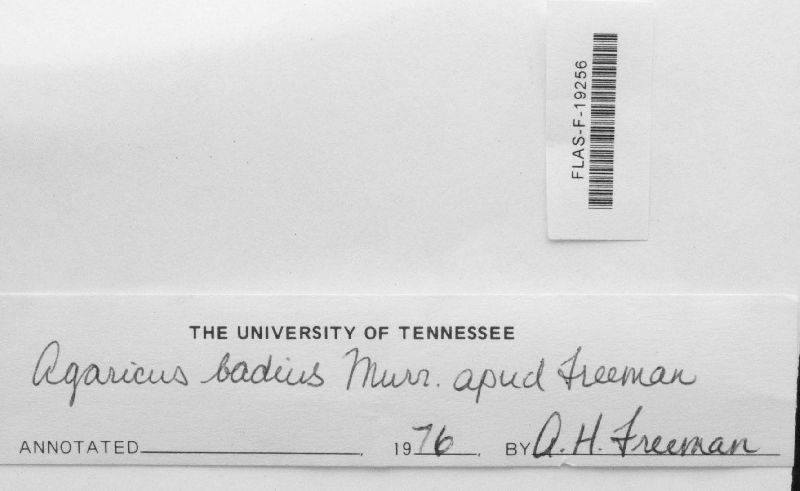 FLAS-F-19256
THE UNIVERSITY OF TENNESSEE
Agaricus badius Murr. apud Freeman
ANNOTATED , 1976, BY A. H. Freeman